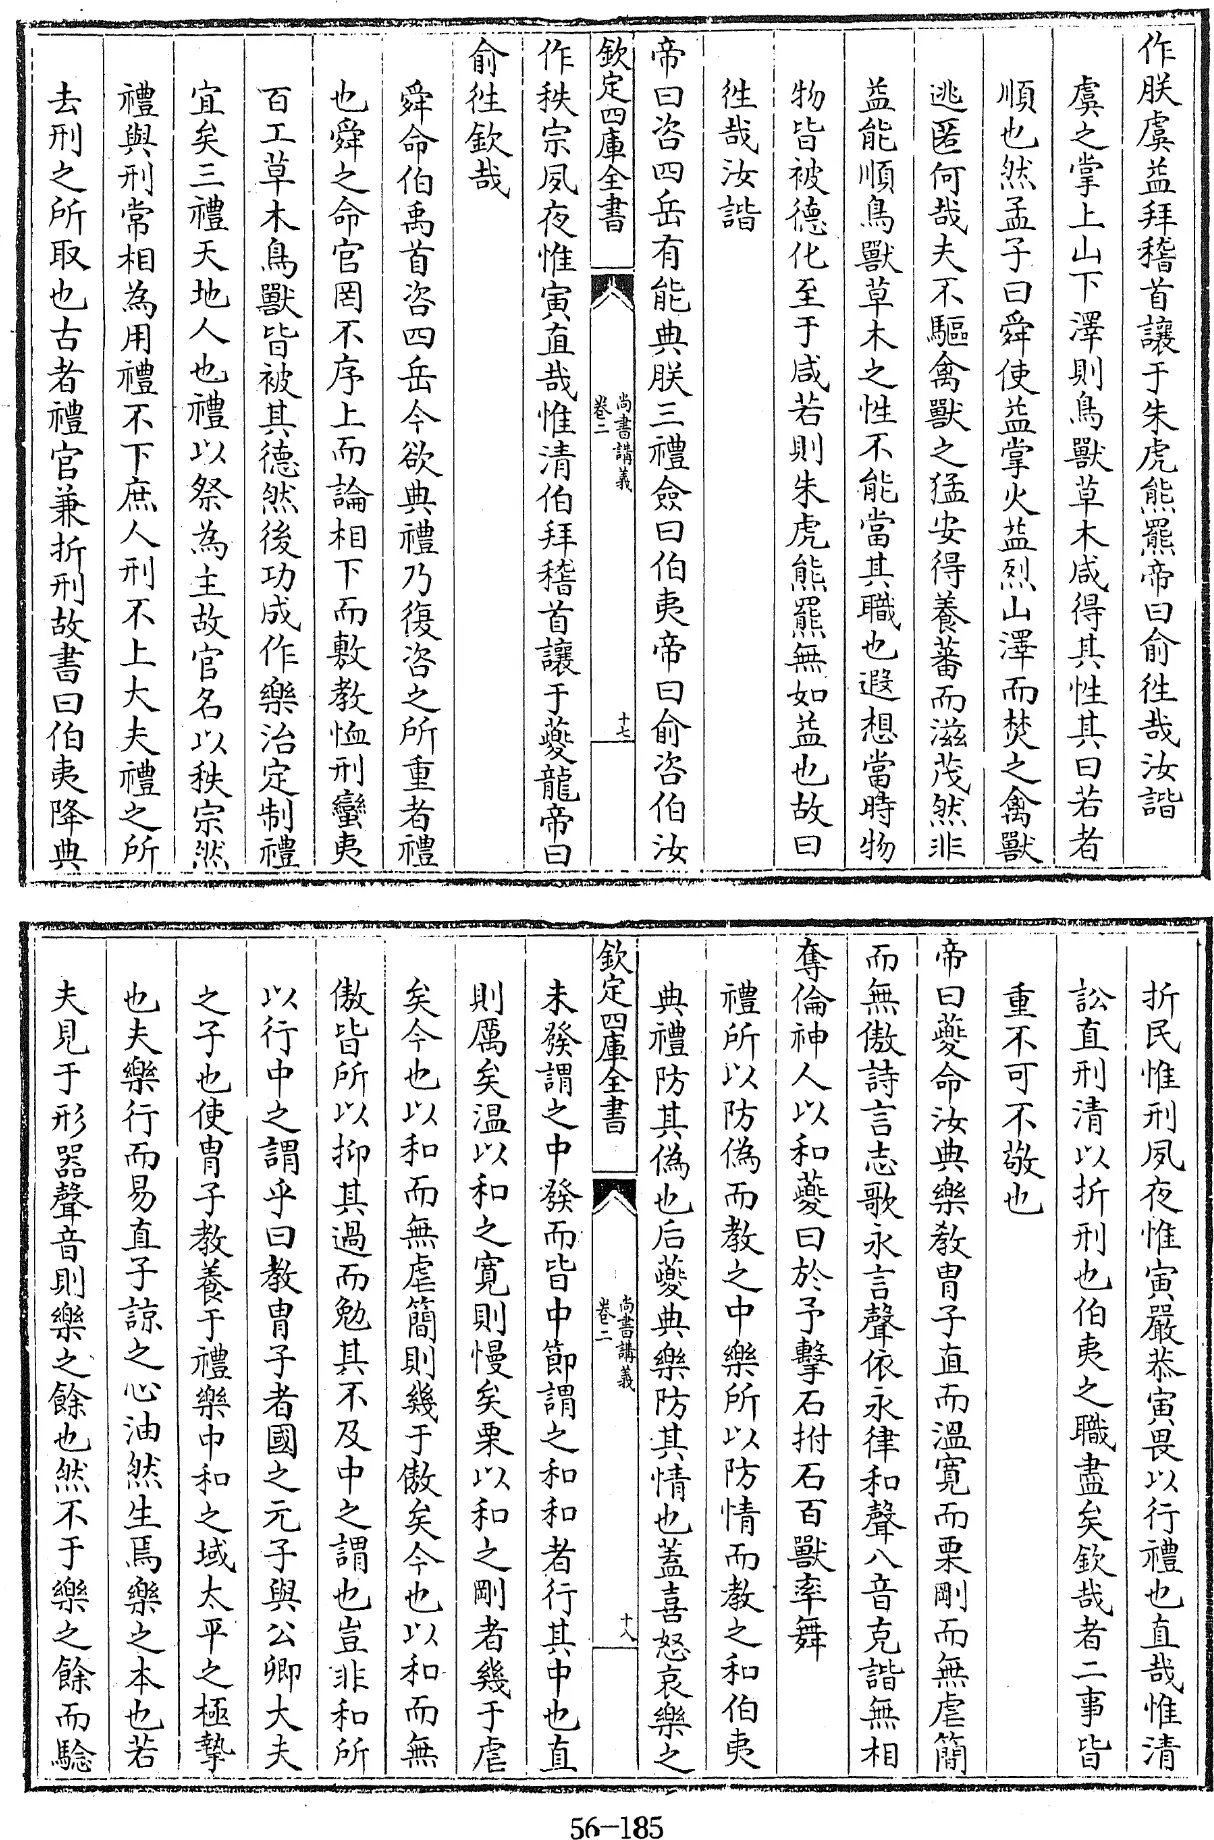 作朕虞益拜稽首讓于朱虎熊羆帝曰俞徃哉汝諧
虞之掌上山下澤則鳥獸草木咸得其性其曰若者
順也然孟子曰舜使益掌火益烈山澤而焚之禽獸
逃匿何哉夫不驅禽獸之猛安得養蕃而滋茂然非
益能順鳥獸草木之性不能當其職也遐想當時物
物皆被德化至于咸若則朱虎熊羆無如益也故曰
徃哉汝諧
帝曰咨四岳有能典朕三禮僉曰伯夷帝曰俞咨伯汝
欽定四庫全書
尚書講義
卷二
十七
作秩宗夙夜惟寅直哉惟清伯拜稽首讓于夔龍帝曰
俞徃欽哉
舜命伯禹首咨四岳今欲典禮乃復咨之所重者禮
也舜之命官罔不序上而論相下而敷教恤刑蠻夷
百工草木鳥獸皆被其德然後功成作樂治定制禮
宜矣三禮天地人也禮以祭為主故官名以秩宗然
禮與刑常相為用禮不下庶人刑不上大夫禮之所
去刑之所取也古者禮官兼折刑故書曰伯夷降典
折民惟刑夙夜惟寅嚴恭寅畏以行禮也直哉惟清
訟直刑清以折刑也伯夷之職盡矣欽哉者二事皆
重不可不敬也
帝曰夔命汝典樂教胄子直而溫寬而栗剛而無虐簡
而無傲詩言志歌永言聲依永律和聲八音克諧無相
奪倫神人以和夔曰於予擊石拊石百獸率舞
禮所以防偽而教之中樂所以防情而教之和伯夷
典禮防其偽也后夔典樂防其情也蓋喜怒哀樂之
欽定四庫全書
尚書講義
卷二
十八
未發謂之中發而皆中節謂之和和者行其中也直
則厲矣温以和之寬則慢矣栗以和之剛者幾于虐
矣今也以和而無虐簡則幾于傲矣今也以和而無
傲皆所以抑其過而勉其不及中之謂也豈非和所
以行中之謂乎曰教胄子者國之元子與公卿大夫
之子也使胄子教養于禮樂中和之域太平之極摯
也夫樂行而易直子諒之心油然生焉樂之本也若
夫見于形器聲音則樂之餘也然不于樂之餘而騐
56-185